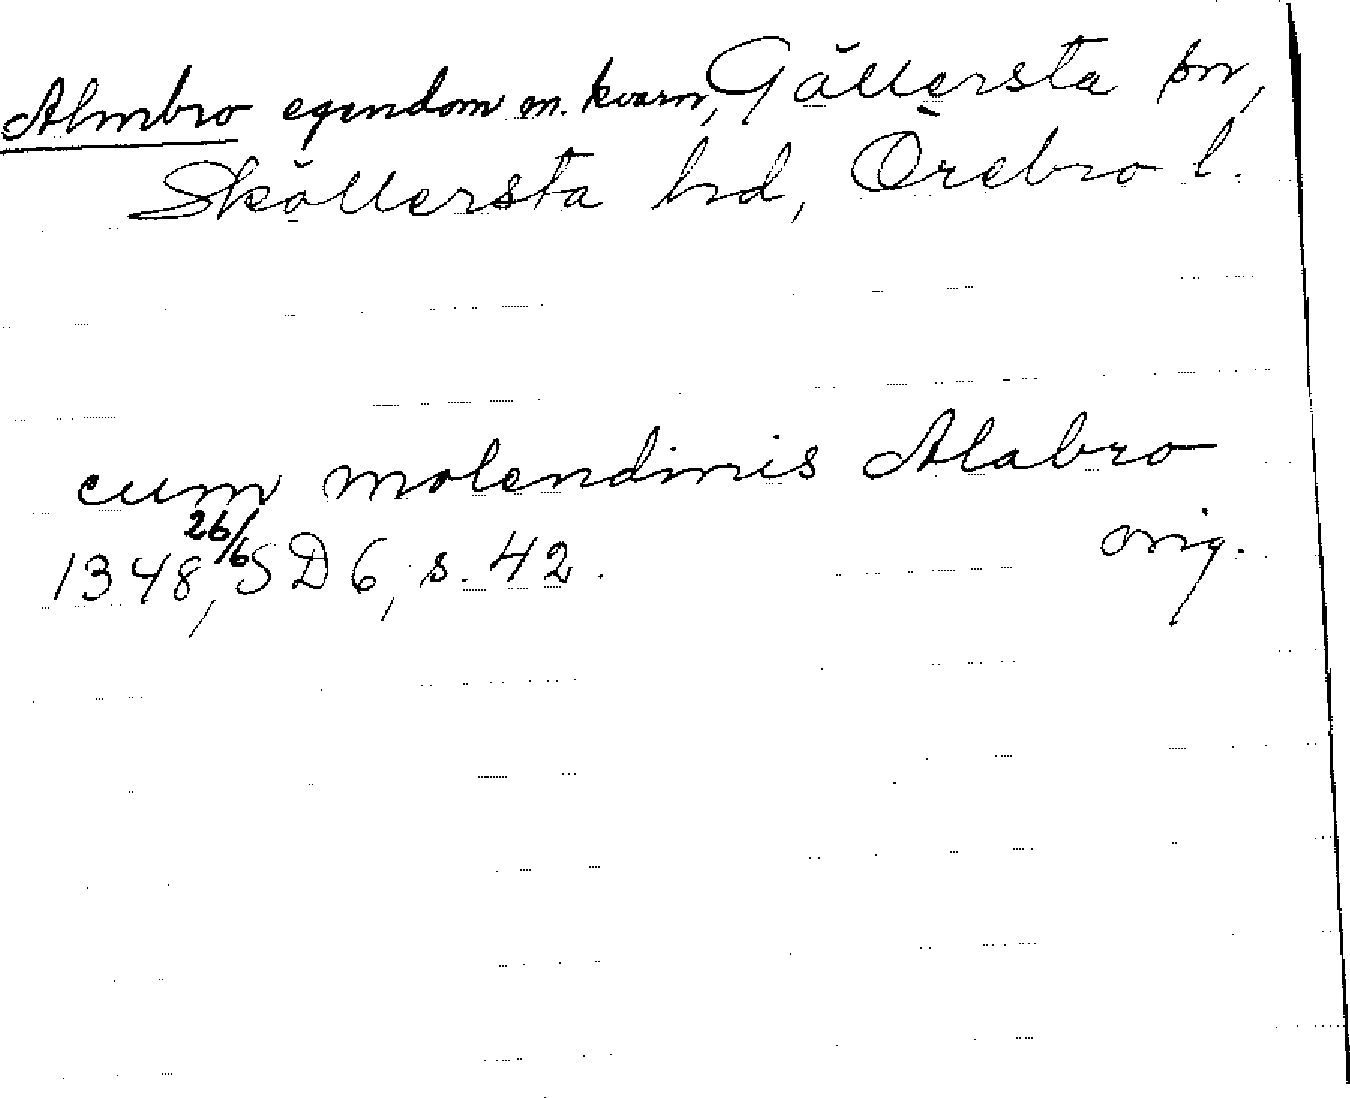 Almbro egendom m. kvarn, Gällersta sn,
Sköllersta hd, Örebro l.
cum molendinis Alabro
1348 26/6, SD 6, s. 42. orig.